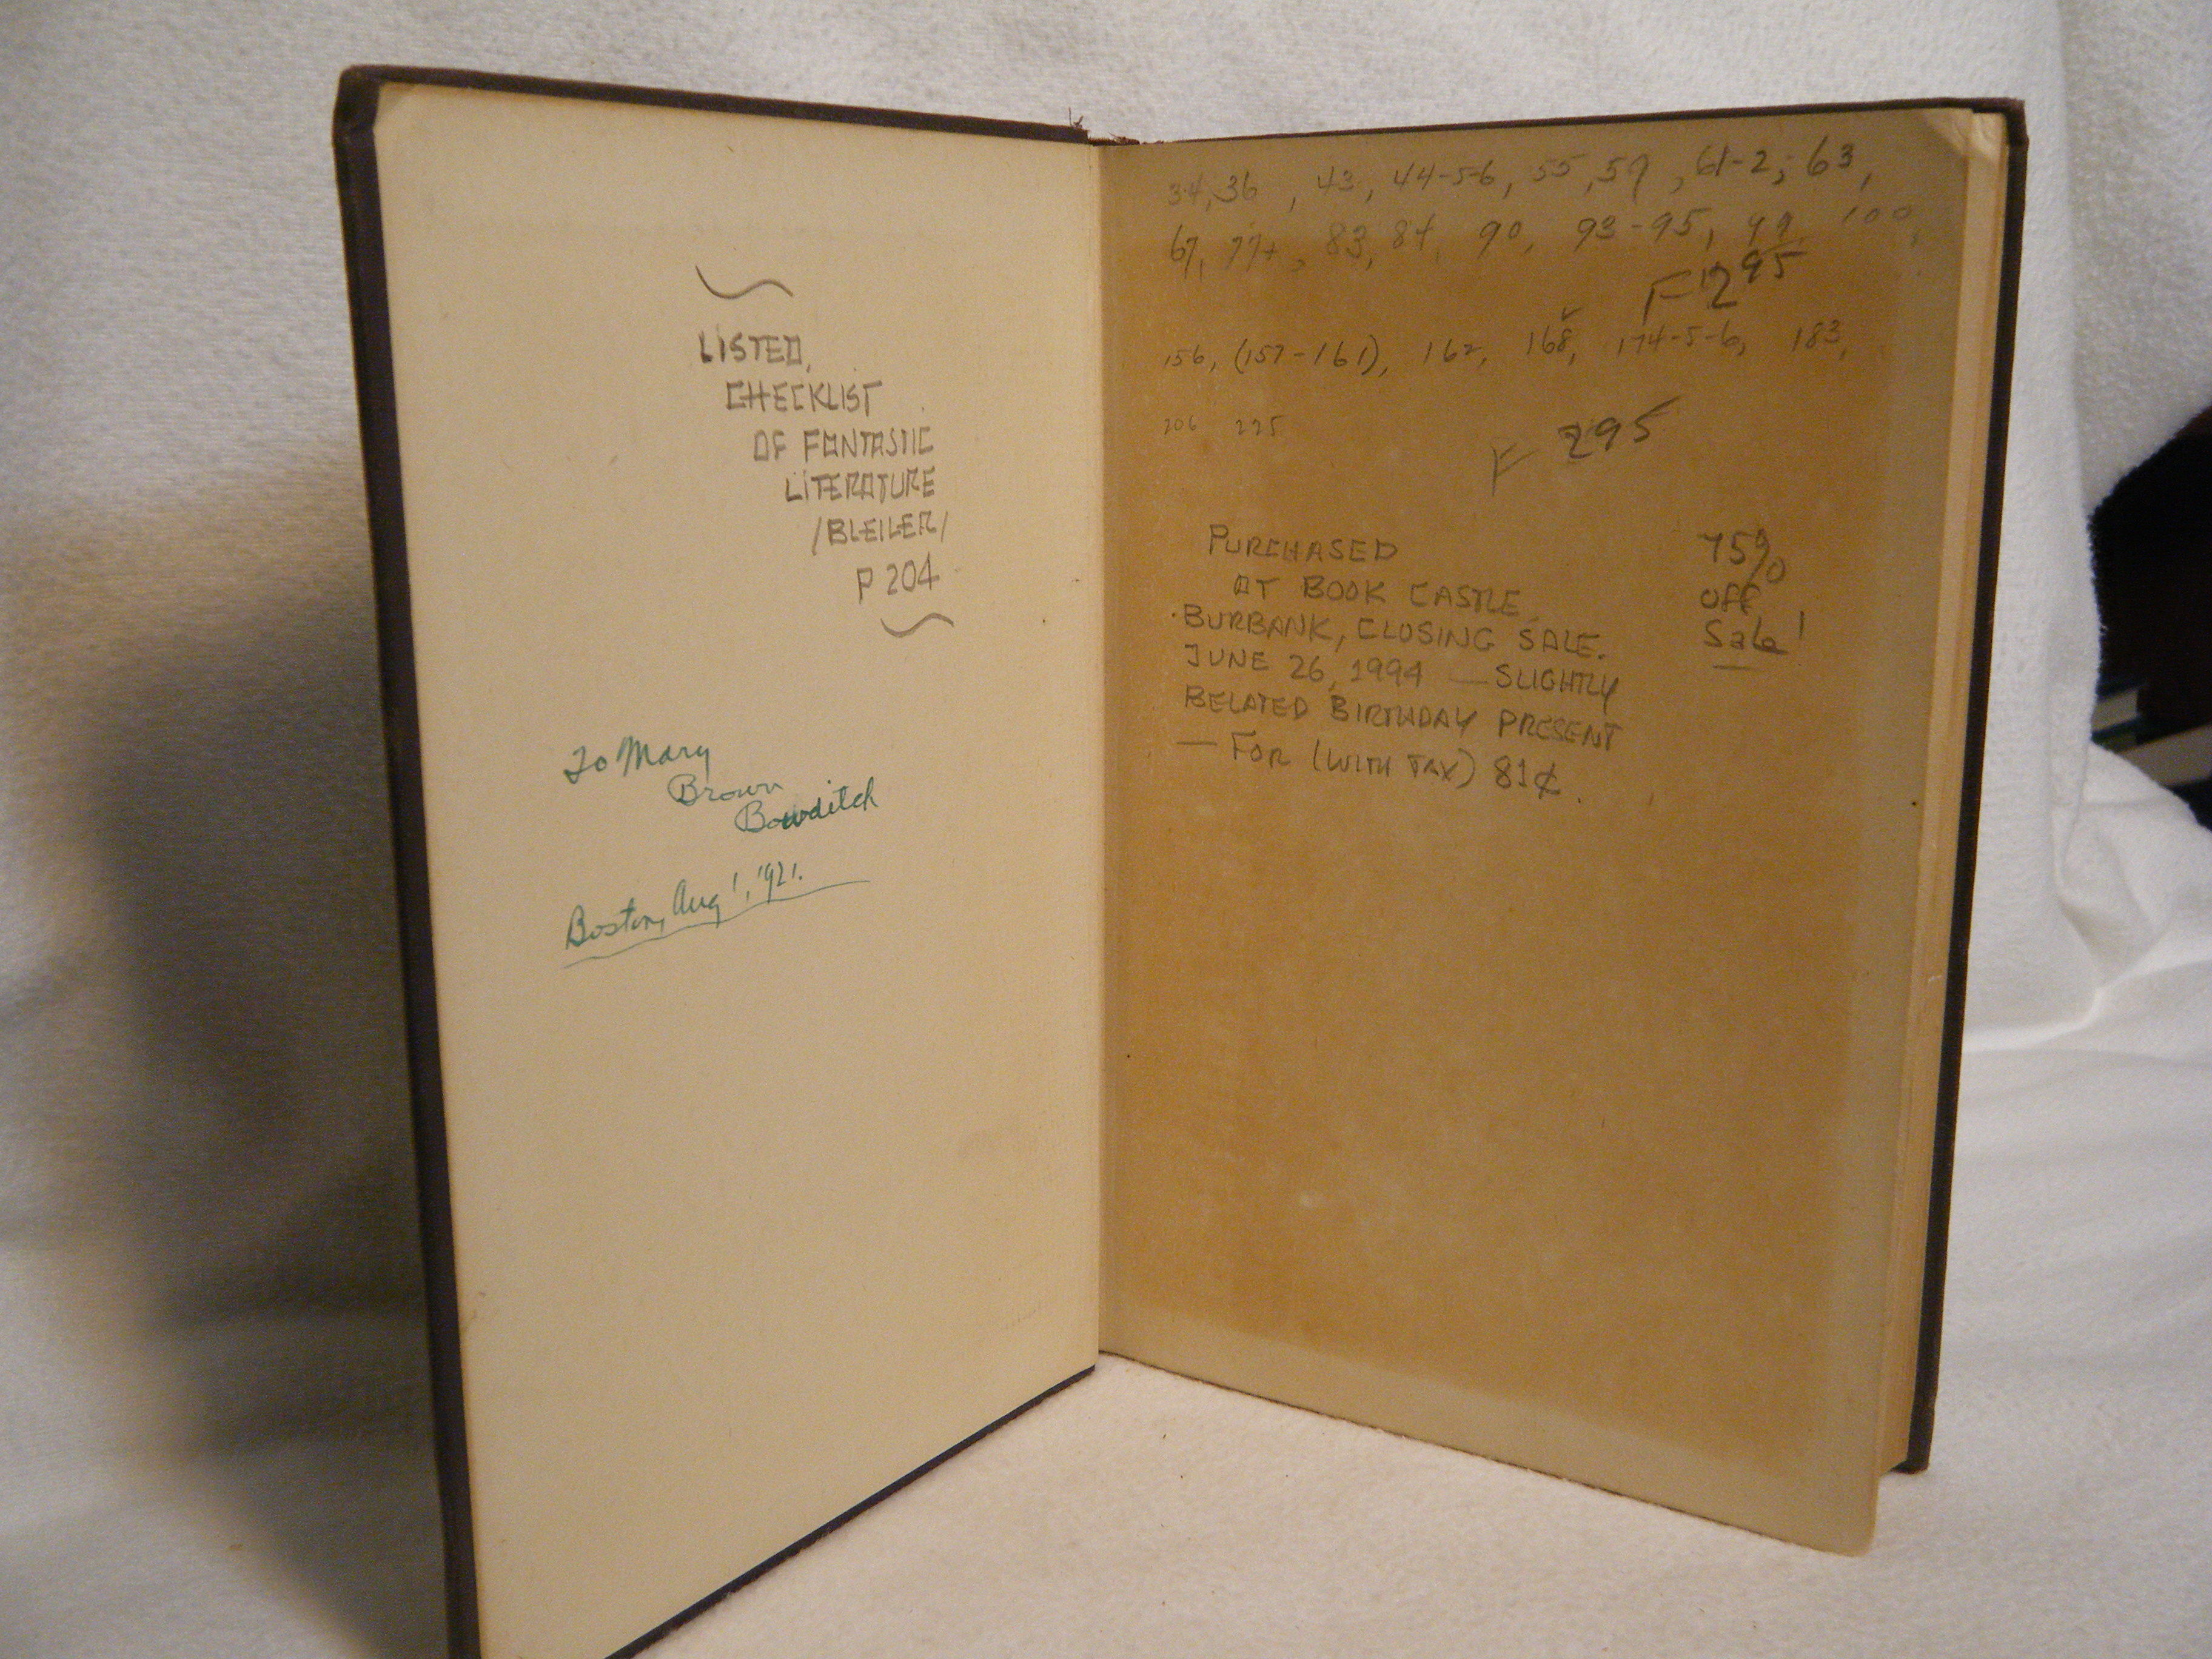 LISTED,
CHECKLIST
OF FANTASTIC
LITERATURE
/BLEILER/
P 204
To Mary
Brown
Bowditch
Boston, Aug 1, '921.
34, 36, 43, 44-5-6, 55, 59, 61-2; 63,
67, 77+, 83, 84, 90, 93-95, 99, 100,
F 295
156, (157-161), 162, 168, 174-5-6, 183,
206 225
F 295
PURCHASED
AT BOOK CASTLE,
BURBANK, CLOSING SALE.
JUNE 26, 1994 — SLIGHTLY
BELATED BIRTHDAY PRESENT
— FOR (WITH TAX) 81¢.
75%
off
Sale!